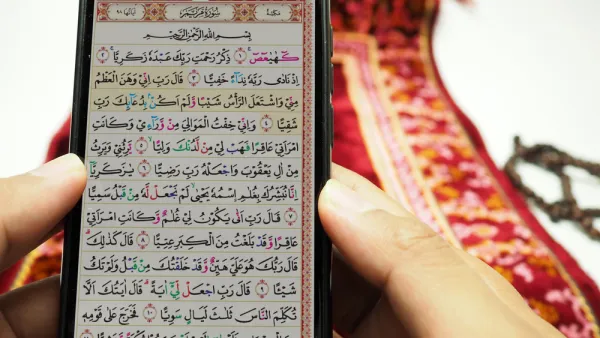 مكية سُورَةُ مَرْيَمَ آياتها ٩٨
بِسْمِ اللّٰهِ الرَّحْمٰنِ الرَّحِيْمِ
كٓهٰيٰعٓصٓ ۚ ۝١ ذِكْرُ رَحْمَتِ رَبِّكَ عَبْدَهٗ زَكَرِيَّا ۚ ۝٢
اِذْ نَادٰى رَبَّهٗ نِدَآءً خَفِيًّا ۝٣ قَالَ رَبِّ اِنِّيْ وَهَنَ الْعَظْمُ
مِنِّيْ وَاشْتَعَلَ الرَّأْسُ شَيْبًا وَّلَمْ اَكُنْۢ بِدُعَآئِكَ رَبِّ
شَقِيًّا ۝٤ وَاِنِّيْ خِفْتُ الْمَوَالِيَ مِنْ وَّرَآءِيْ وَكَانَتِ
امْرَاَتِيْ عَاقِرًا فَهَبْ لِيْ مِنْ لَّدُنْكَ وَلِيًّا ۙ ۝٥ يَّرِثُنِيْ وَيَرِثُ
مِنْ اٰلِ يَعْقُوْبَ وَاجْعَلْهُ رَبِّ رَضِيًّا ۝٦ يٰزَكَرِيَّآ
اِنَّا نُبَشِّرُكَ بِغُلٰمِ ࣙاسْمُهٗ يَحْيٰى ۙ لَمْ نَجْعَلْ لَّهٗ مِنْ قَبْلُ سَمِيًّا
۝٧ قَالَ رَبِّ اَنّٰى يَكُوْنُ لِيْ غُلٰمٌ وَّكَانَتِ امْرَاَتِيْ
عَاقِرًا وَّقَدْ بَلَغْتُ مِنَ الْكِبَرِ عِتِيًّا ۝٨ قَالَ كَذٰلِكَ ۚ
قَالَ رَبُّكَ هُوَ عَلَيَّ هَيِّنٌ وَّقَدْ خَلَقْتُكَ مِنْ قَبْلُ وَلَمْ تَكُ
شَيْـًٔا ۝٩ قَالَ رَبِّ اجْعَلْ لِّيْٓ اٰيَةً ۗ قَالَ اٰيَتُكَ اَلَّا
تُكَلِّمَ النَّاسَ ثَلٰثَ لَيَالٍ سَوِيًّا ۝١٠ فَخَرَجَ عَلٰى قَوْمِهٖ